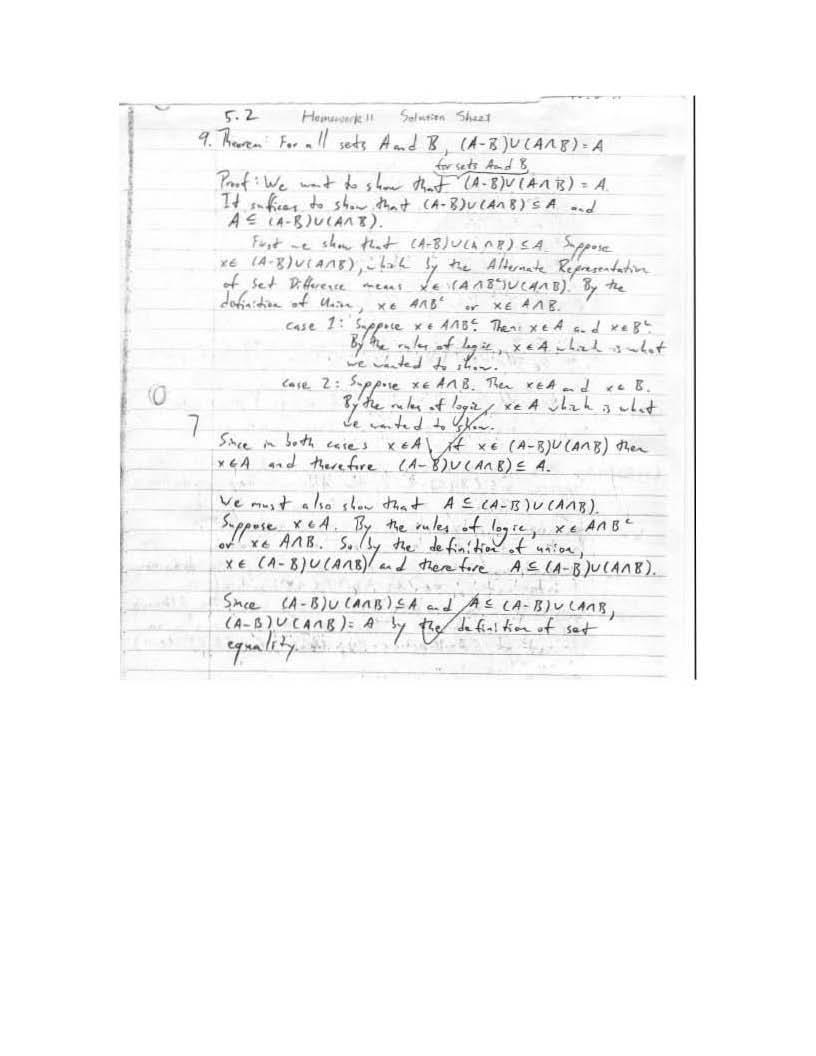 5.2 Homework 11 Solution Sheet
9. Theorem: For all sets A and B, (A-B)∪(A∩B)=A
for sets A and B
Proof: We want to show that (A-B)∪(A∩B) = A.
It suffices to show that (A-B)∪(A∩B) ⊆ A and
A ⊆ (A-B)∪(A∩B).
First we show that (A-B)∪(A∩B) ⊆ A. Suppose
x∈ (A-B)∪(A∩B), which by the Alternate Representation
of Set Difference means x∈ (A∩Bᶜ)∪(A∩B). By the
definition of Union, x∈ A∩Bᶜ or x∈ A∩B.
case 1: Suppose x∈ A∩Bᶜ. Then x∈A and x∈Bᶜ.
By the rules of logic, x∈A which is what
we wanted to show.
case 2: Suppose x∈ A∩B. Then x∈A and x∈ B.
By the rules of logic, x∈ A which is what
we wanted to show.
7
Since in both cases x∈A, if x∈ (A-B)∪(A∩B) then
x∈A and therefore (A-B)∪(A∩B) ⊆ A.
We must also show that A ⊆ (A-B)∪(A∩B).
Suppose x∈A. By the rules of logic, x∈ A∩Bᶜ
or x∈ A∩B. So by the definition of union,
x∈ (A-B)∪(A∩B) and therefore A ⊆ (A-B)∪(A∩B).
Since (A-B)∪(A∩B) ⊆ A and A ⊆ (A-B)∪(A∩B,
(A-B)∪(A∩B) = A by the definition of set
equality.